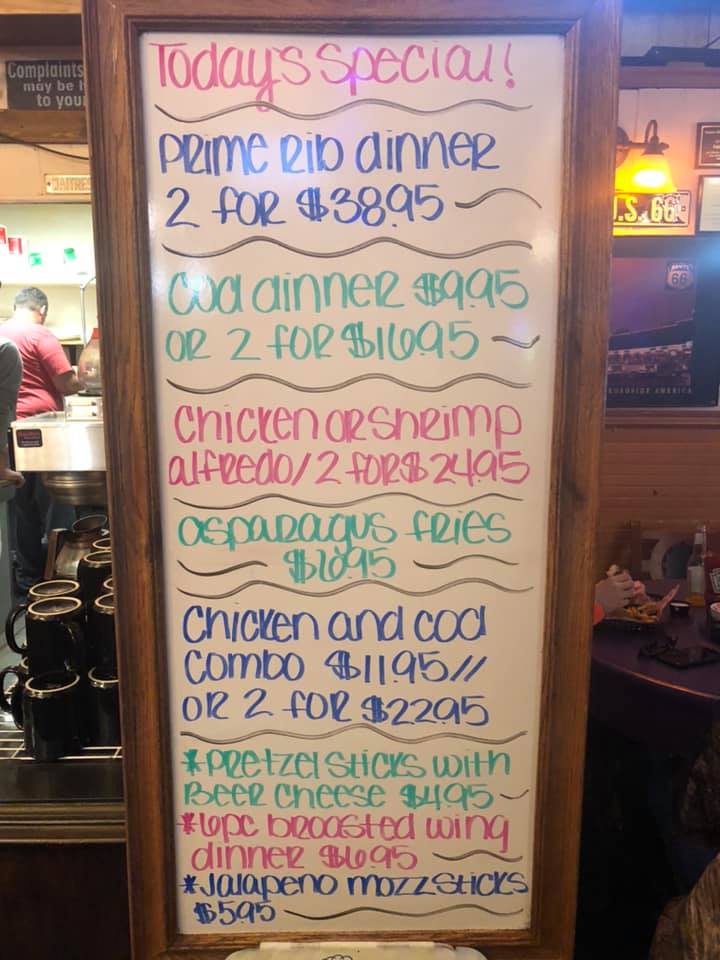 Today's Special!
Prime Rib dinner
2 for $38.95
Cod dinner $9.95
OR 2 for $16.95
Chicken or Shrimp
alfredo/2 for $24.95
asparagus fries
$6.95
Chicken and cod
Combo $11.95//
OR 2 for $22.95
*Pretzel Sticks with
Beer cheese $4.95
*6pc broasted wing
dinner $6.95
*Jalapeno mozz Sticks
$5.95
Complaints
may be
to your
U.S. 66
66
ROADSIDE AMERICA